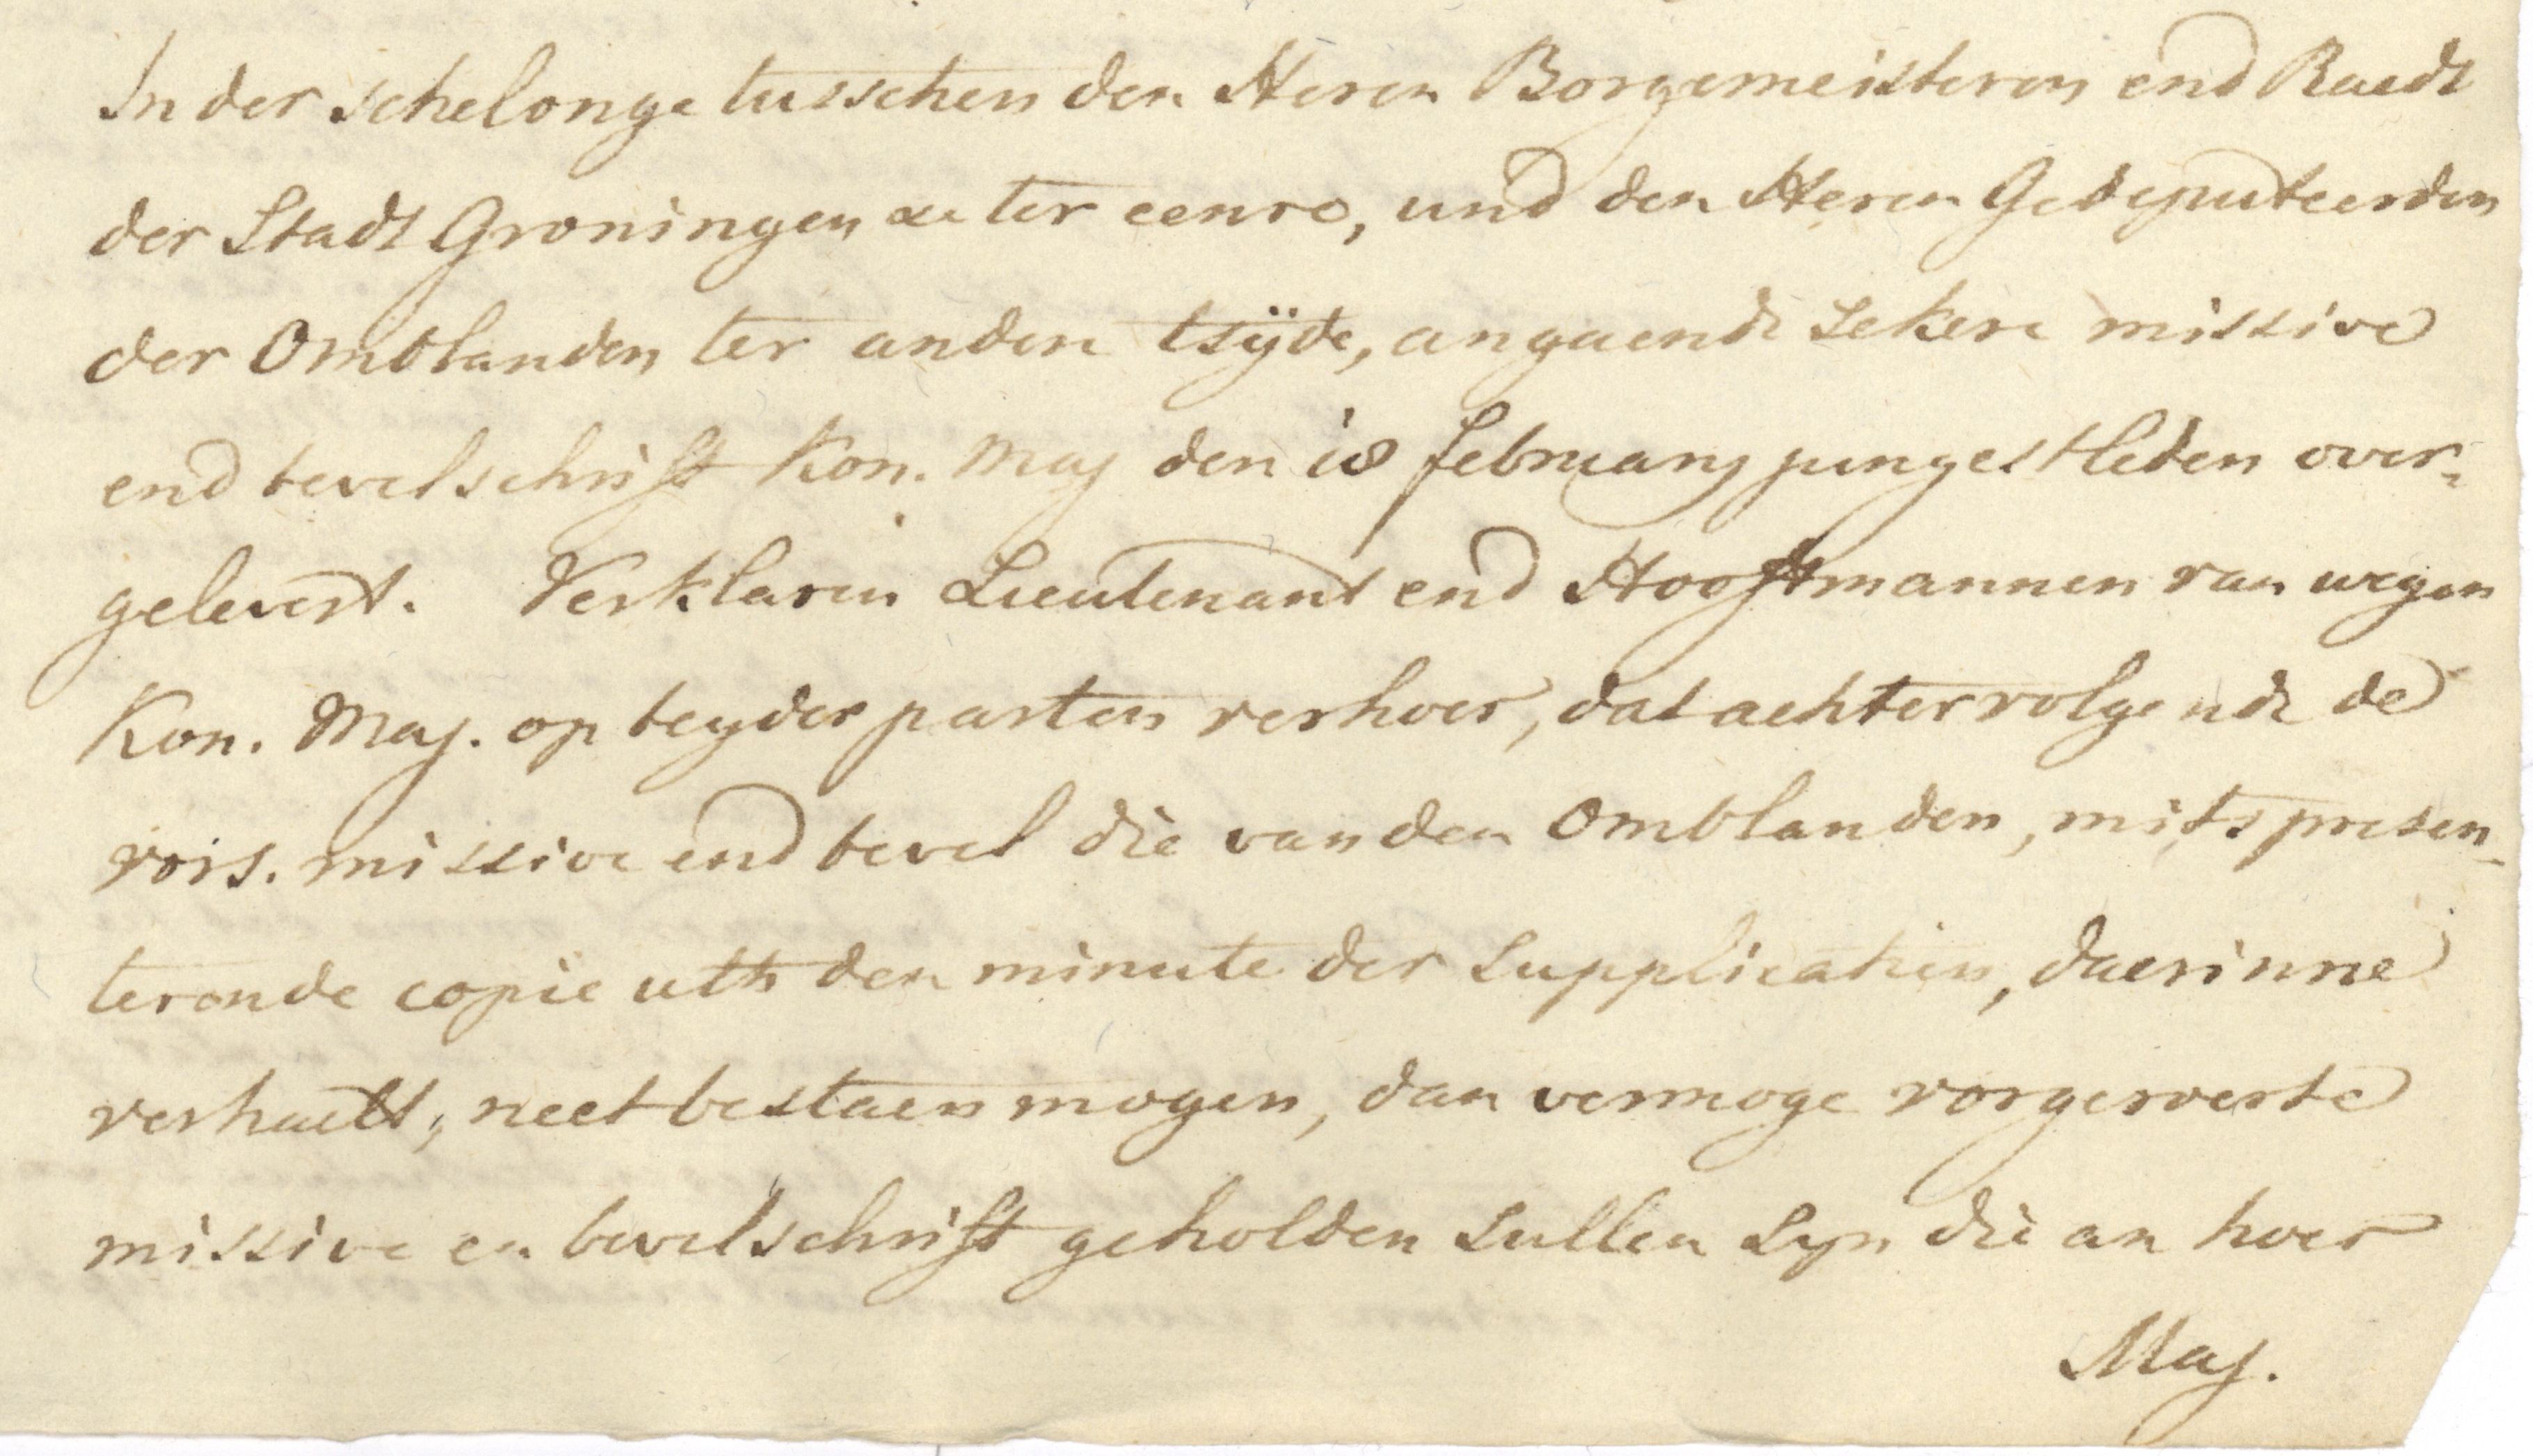 In der schelonge tusschen den Heren Borgemeisteren end Raedt
der Stadt Groningen ae ter eenre, und den Heren Gedeputeerden
der Omblanden ter andere tsÿde, angaende sekere missive
end bevelschrift Kon. Maj den 18 february jungestleden over-
gelevert. Verklaren Lieutenant end Hooftmannen van wegen
Kon. Maj. op beyder parten verhoer, dat achtervolgende de
vors. missive end bevel die van den Omblanden, mits presen-
terende copie uth den minute der supplicatien, daerinne
verhaelt, neet bestaen mogen, dan vermoge vorgeroerte
missive en bevelschrift geholden sullen syn die an hoer
Maj.